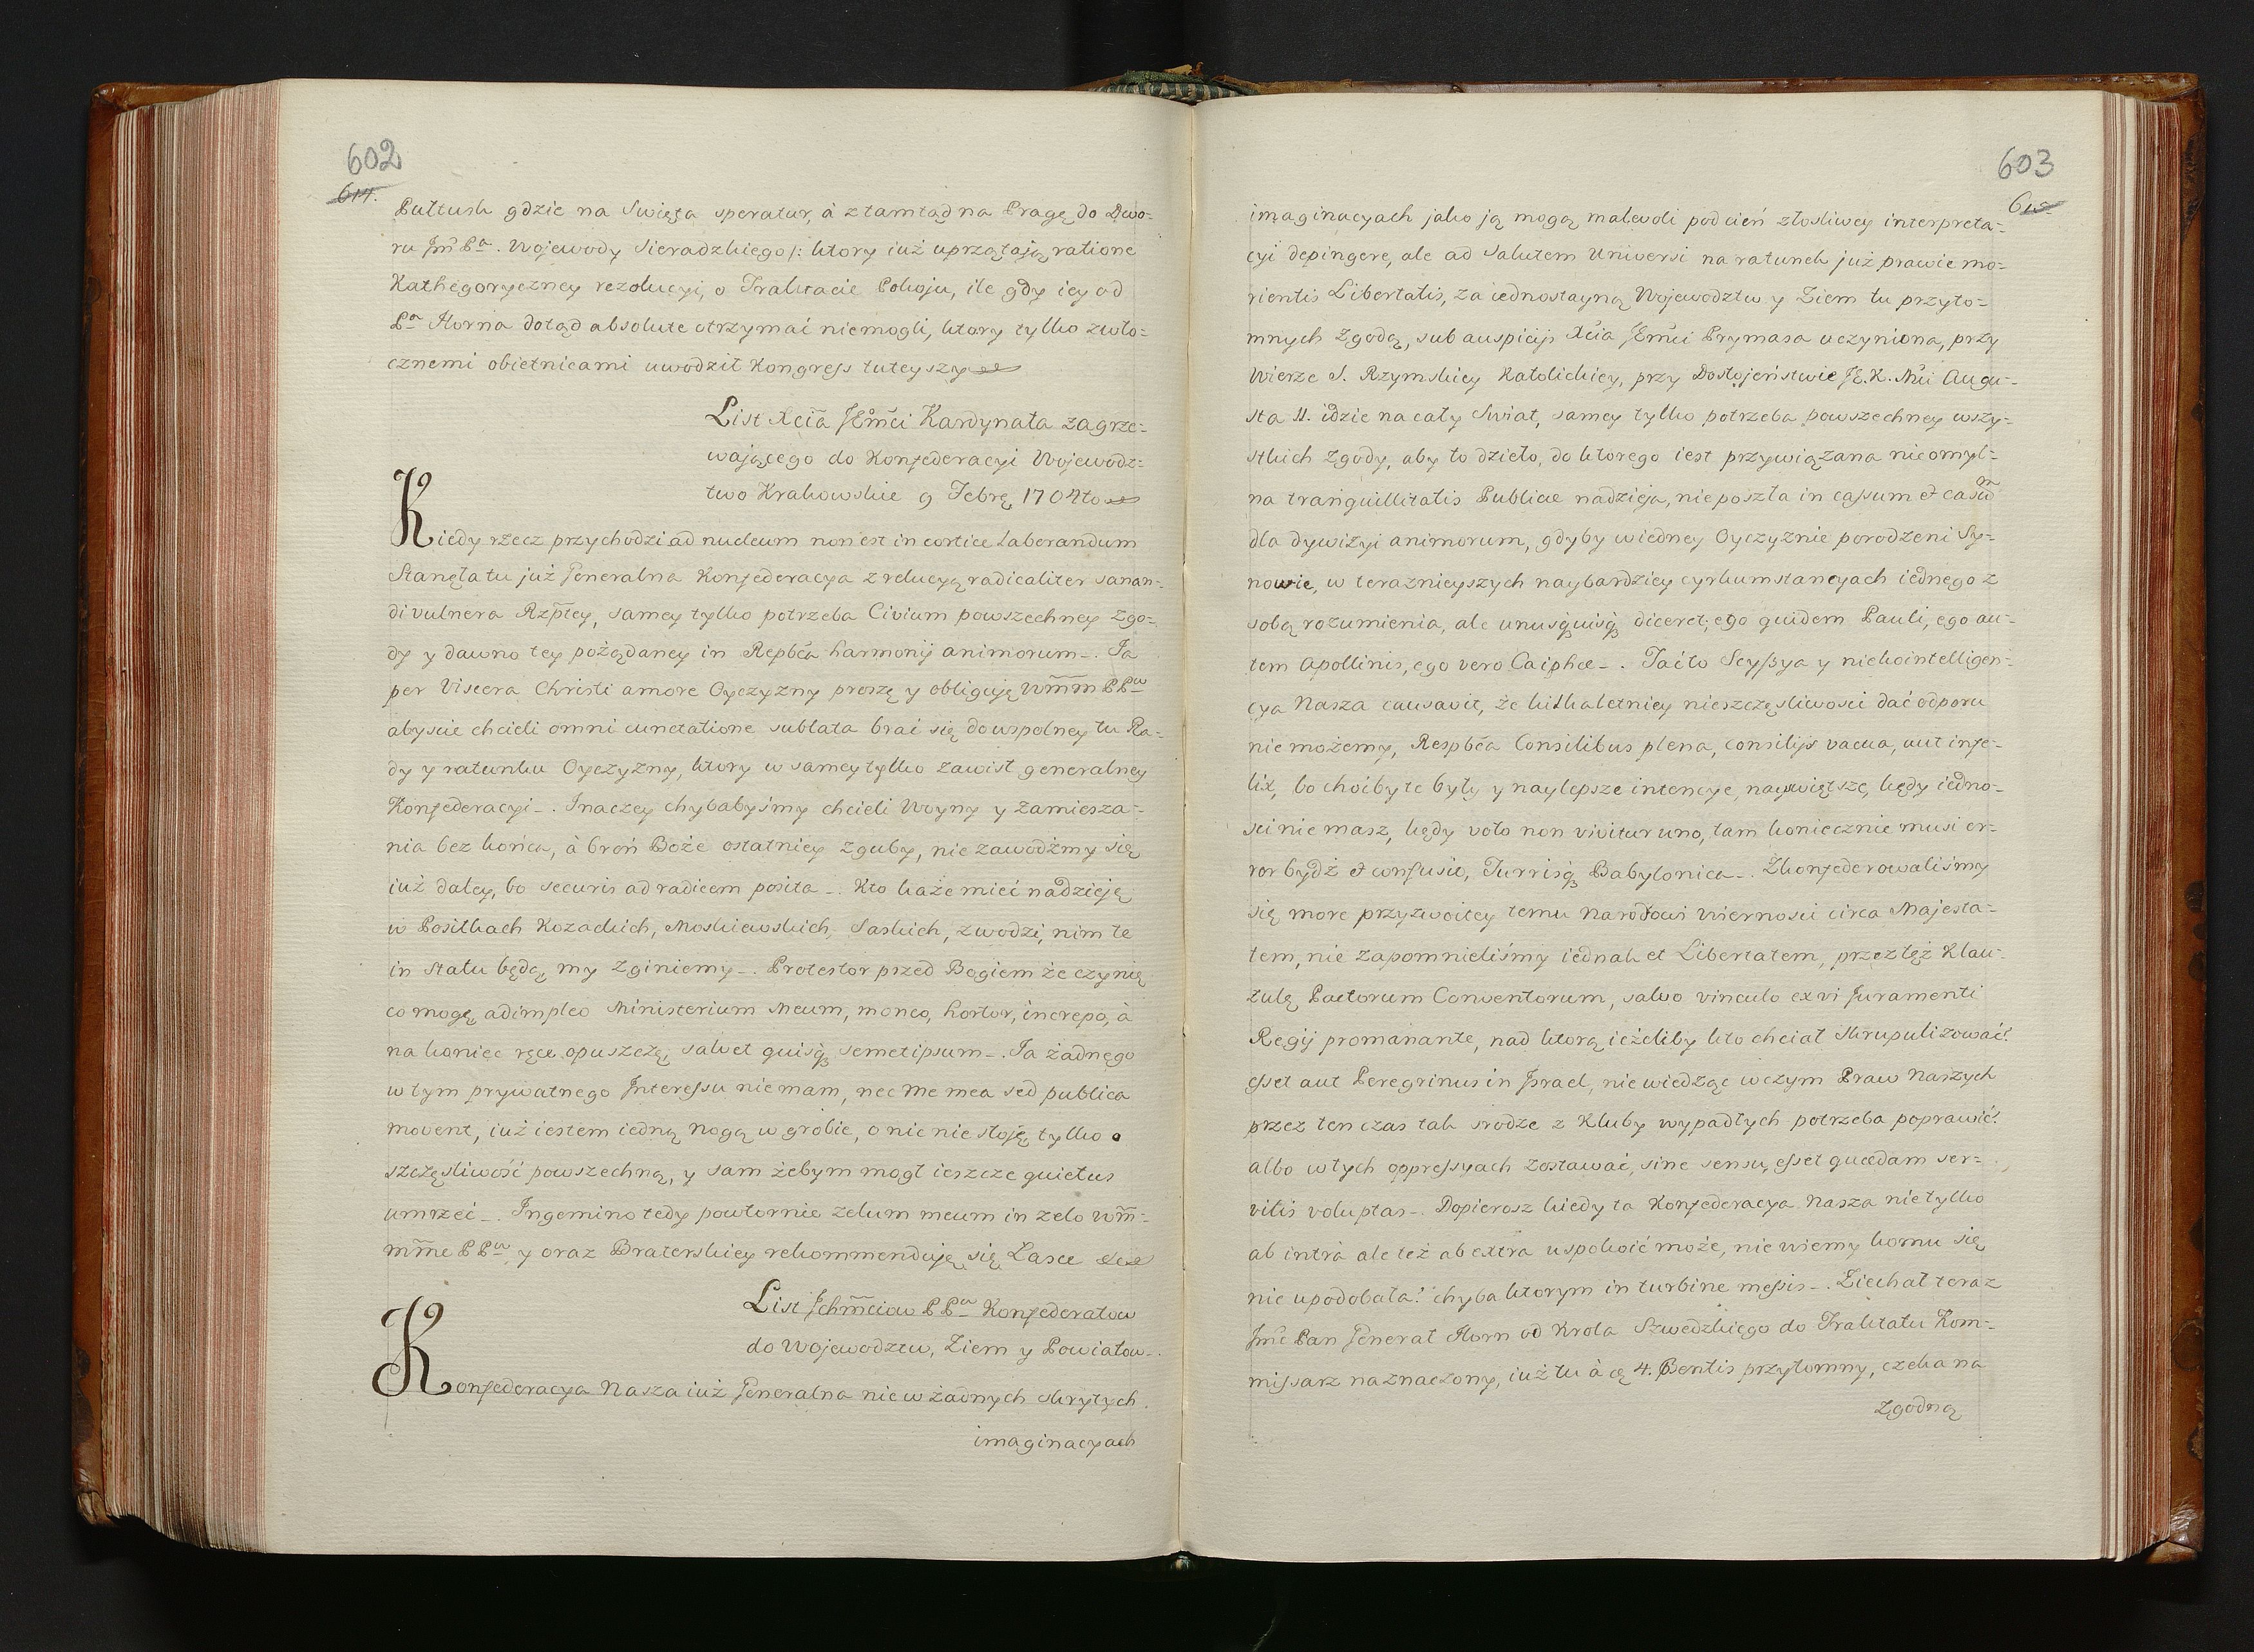 602
614.
Pułtusk gdzie na Swięta speratur, à ztamtąd na Pragę do Dwo=
ru Jm̃ Pa. Wojewody Sieradzkiego/: ktory iuż uprzątają ratione
Kathegoryczney rezolucyi, o Traktacie Pokoju, ile gdy iey od
Pa Horna dotąd absolute otrzymać niemogli, ktory tylko zwło=
cznemi obietnicami uwodził Kongress tuteyszy
List Xcia JEm̃ci Kardynała zagrze=
wającego do Konfederacyi Wojewodz=
two Krakowskie 9 Febrę 1704to
Kiedy rzecz przychodzi ad nucleum non est in cortice laborandum
Stanęła tu już Generalna Konfederacya z relucyą radicaliter sanan=
di vulnera Rzp̃tey, samey tylko potrzeba Civium powszechney zgo=
dy y dawno tey pożądaney in Repb̃ca harmonij animorum_. Ja
per Viscera Christi amore Oyczyzny proszę y obliguję Wm̃m̃ PPw
abyscie chcieli omni cunctatione sublata brać się do wspolney tu Ra=
dy y ratunku Oyczyzny, ktory w samey tylko zawisł generalney
Konfederacyi_. Inaczey chybabyśmy chcieli Woyny y zamiesza=
nia bez końca, à broń Boże ostatniey zguby, nie zawodźmy się
iuż daley, bo securis ad radicem posita_. Kto każe mieć nadzieję
w Posiłkach Kozackich, Moskiewskich, Saskich, zwodzi, nim te
in statu będą, my zginiemy_. Protestor przed Bogiem że czynię
co mogę, adimpleo Ministerium Meum, moneo, hortor, increpo, à
na koniec ręce opuszczę, salvet quisq; semetipsum_. Ja żadnego
w tym prywatnego Interessu niemam, nec me mea sed publica
movent, iuż iestem iedną nogą w grobie, o nic nie stoję tylko o
szczęsliwość powszechną, y sam żebym mogł ieszcze quietus
umrzeć_. Ingemino tedy powtornie zelum meum in zelo Wm̃=
m̃ne PPw y oraz Braterskiey rekommenduję się Łasce
List Jchm̃ciow PPw Konfederatow
do Wojewodztw, Ziem y Powiatow_.
Konfederacya Nasza iuż Generalna nie w żadnych skrytych
imaginacyach
603
615.
imaginacyach jako ją mogą malevoli pod cień złosliwey interpreta=
cyi depingere, ale ad salutem Universi na ratunek już prawie mo=
rientis Libertatis, za iednostayną Wojewodztw y Ziem tu przyto=
mnych Zgodą, sub auspicijs Xcia JEm̃ci Prymasa uczyniona, przy
Wierze S. Rzymskiey Katolickiey, przy Dostojeństwie JE.K.Mci Augu=
sta II. idzie na cały Swiat, samey tylko potrzeba powszechney wszy=
stkich Zgody, aby to dzieło, do ktorego iest przywiązana nieomyl=
na tranquillitatis Publicae nadzieja, nie poszła in cassum et casum
dla dywizyi animorum, gdyby w iedney Oyczyznie porodzeni Sy=
nowie, w teraznieyszych naybardziey cyrkumstancyach iednego z
sobą rozumienia, ale unusquisq; diceret; ego quidem Pauli, ego au=
tem Apollinis, ego vero Caiphæ_. Taćto Scyssya y niekointelligen=
cya Nasza causavit, że kilkaletniey nieszczęsliwosci dać odporu
nie możemy, Respb̃ca Consilibus plena, consilijs vacua, aut infe=
lix, bo choćby te były y naylepsze intencye, nayswiętsze, kędy iedno=
sci nie masz, kędy voto non vivitur uno, tam koniecznie musi er=
ror bydź et confusio, Turrisq; Babylonica_. Zkonfederowaliśmy
się more przyzwoitey temu Narodowi Wiernosci circa Majesta=
tem, nie zapomnieliśmy iednak et Libertatem, przez też Klau=
zulę Pactorum Conventorum, salvo vinculo ex vi Juramenti
Regij promanante, nad ktorą ieżeliby kto chciał skrupulizować?
esset aut Peregrinus in Israel, nie wiedząc w czym Praw Naszych
przez ten czas tak srodze z Kluby wypadłych potrzeba poprawić?
albo w tych oppressyach zostawać, sine sensu, esset quædam ser=
vilis voluptas_. Dopierosz kiedy ta Konfederacya Nasza nie tylko
ab intrà ale też ab extra uspokoić może, nie wiemy komu się
nie upodobała? chyba ktorym in turbine messis_. Ziechał teraz
Jm̃c Pan Generał Horn od Krola Szwedzkiego do Traktatu Kom=
missarz naznaczony, iuż tu à 4. Bentis przytomny, czeka na
Zgodną